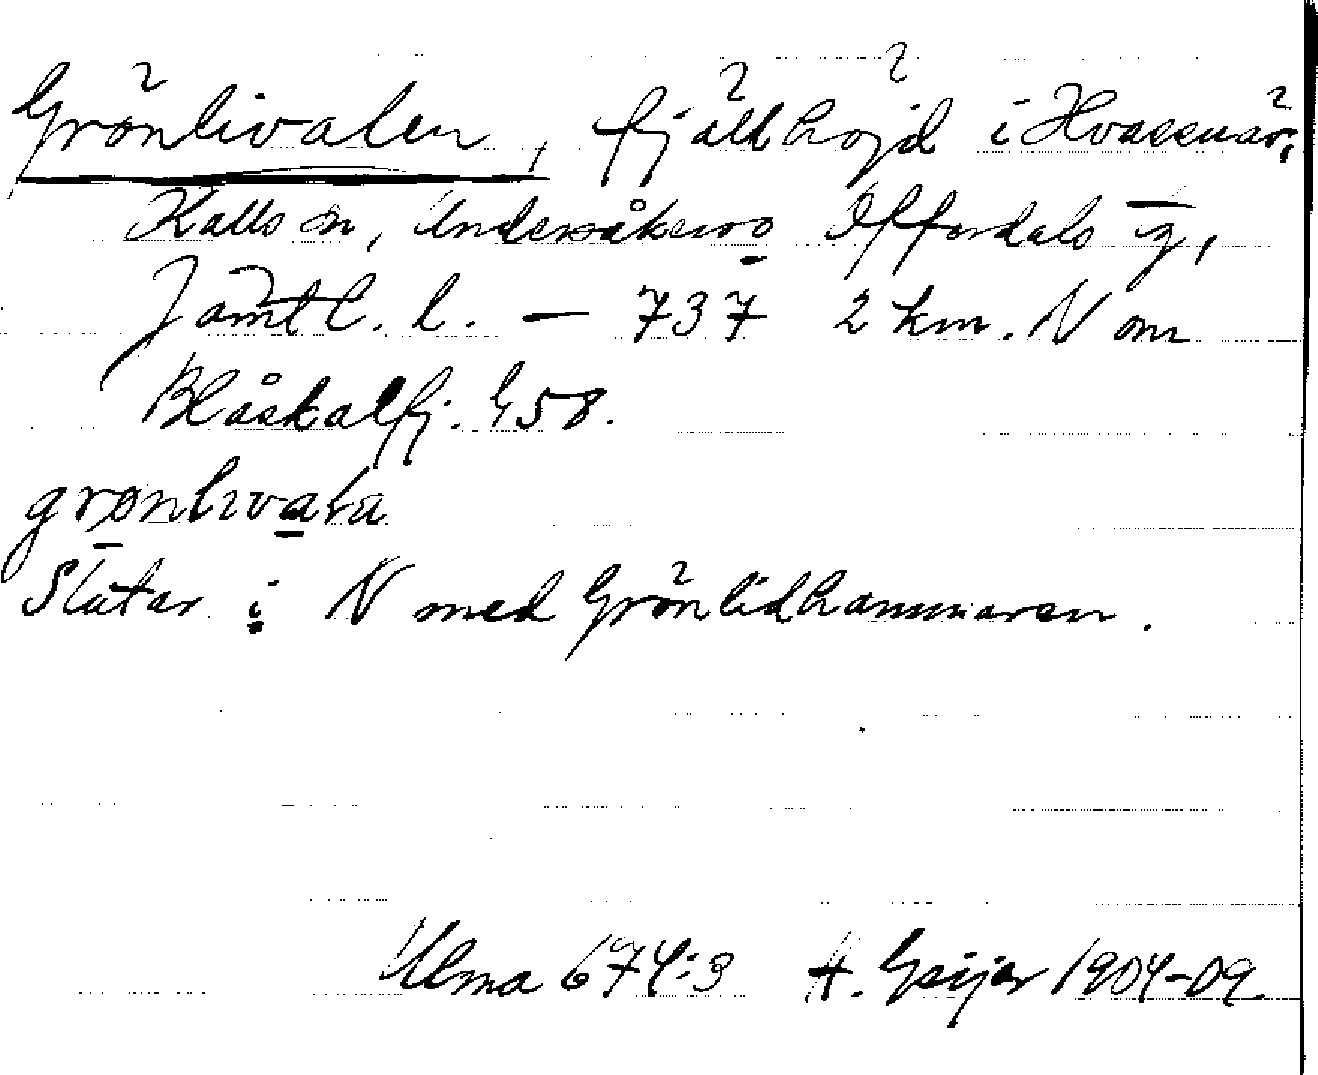 Grönlivalen, fjällhöjd i Hvassnär,
Kalls sn, Undersåkers o Offerdals tg,
Jämtl. l. — 737 2 km. N om
Blåskalfj. G58.
grønlivala
Slutar i N med Grönlidhammaren.
Ulma 674:3 H. Geijer 1904-09.